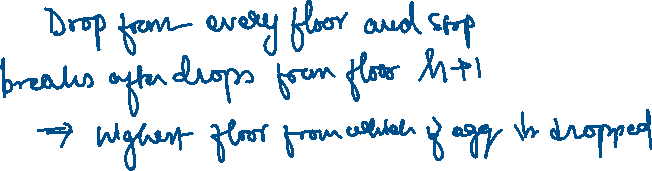 Drop from every floor and stop
breaks after drops from floor h+1
→ highest floor from which if egg is dropped